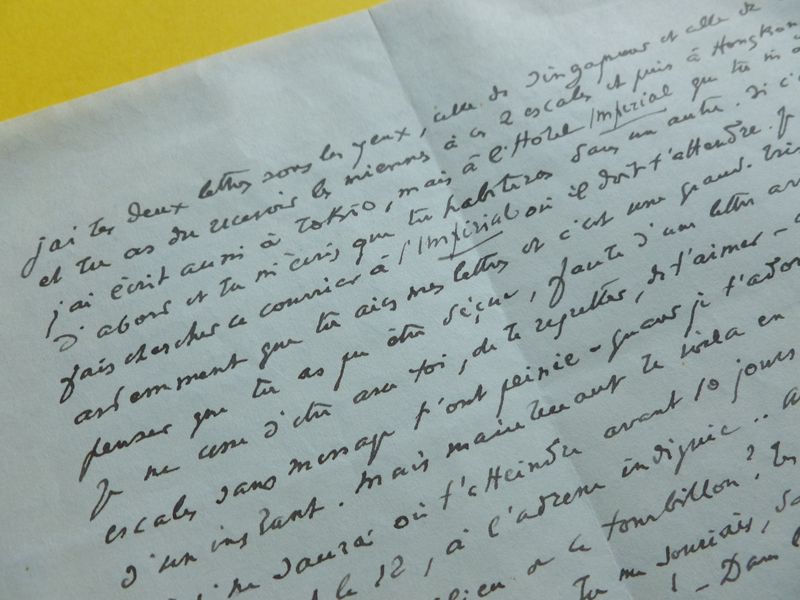 j'ai tes deux lettres sous les yeux, celle de Singapour et celle de
et tu as du recevoir les miennes à ces 2 escales et puis à Hongkon
j'ai écrit aussi à Tokio, mais à l'Hotel Impérial que tu m'a
d'abord et tu m'écris que tu habiteras dans un autre. Si c'
fais chercher ce courrier à l'Impérial où il doit t'attendre. J
ardemment que tu aies mes lettres et c'est une grand.
penser que tu as pu être déçue, faute d'une lettre
Je ne cesse d'être avec toi, de te regretter, de t'aimer -
escales sans message t'ont peinée - quand je t'ador
d'un instant. Mais maintenant te voilà en
je ne saurai où t'atteindre avant 10 jours
le 12, à l'adresse indiquée ..
milieu de ce tourbillon? Tes
Tu me souriais,
! - Dans l